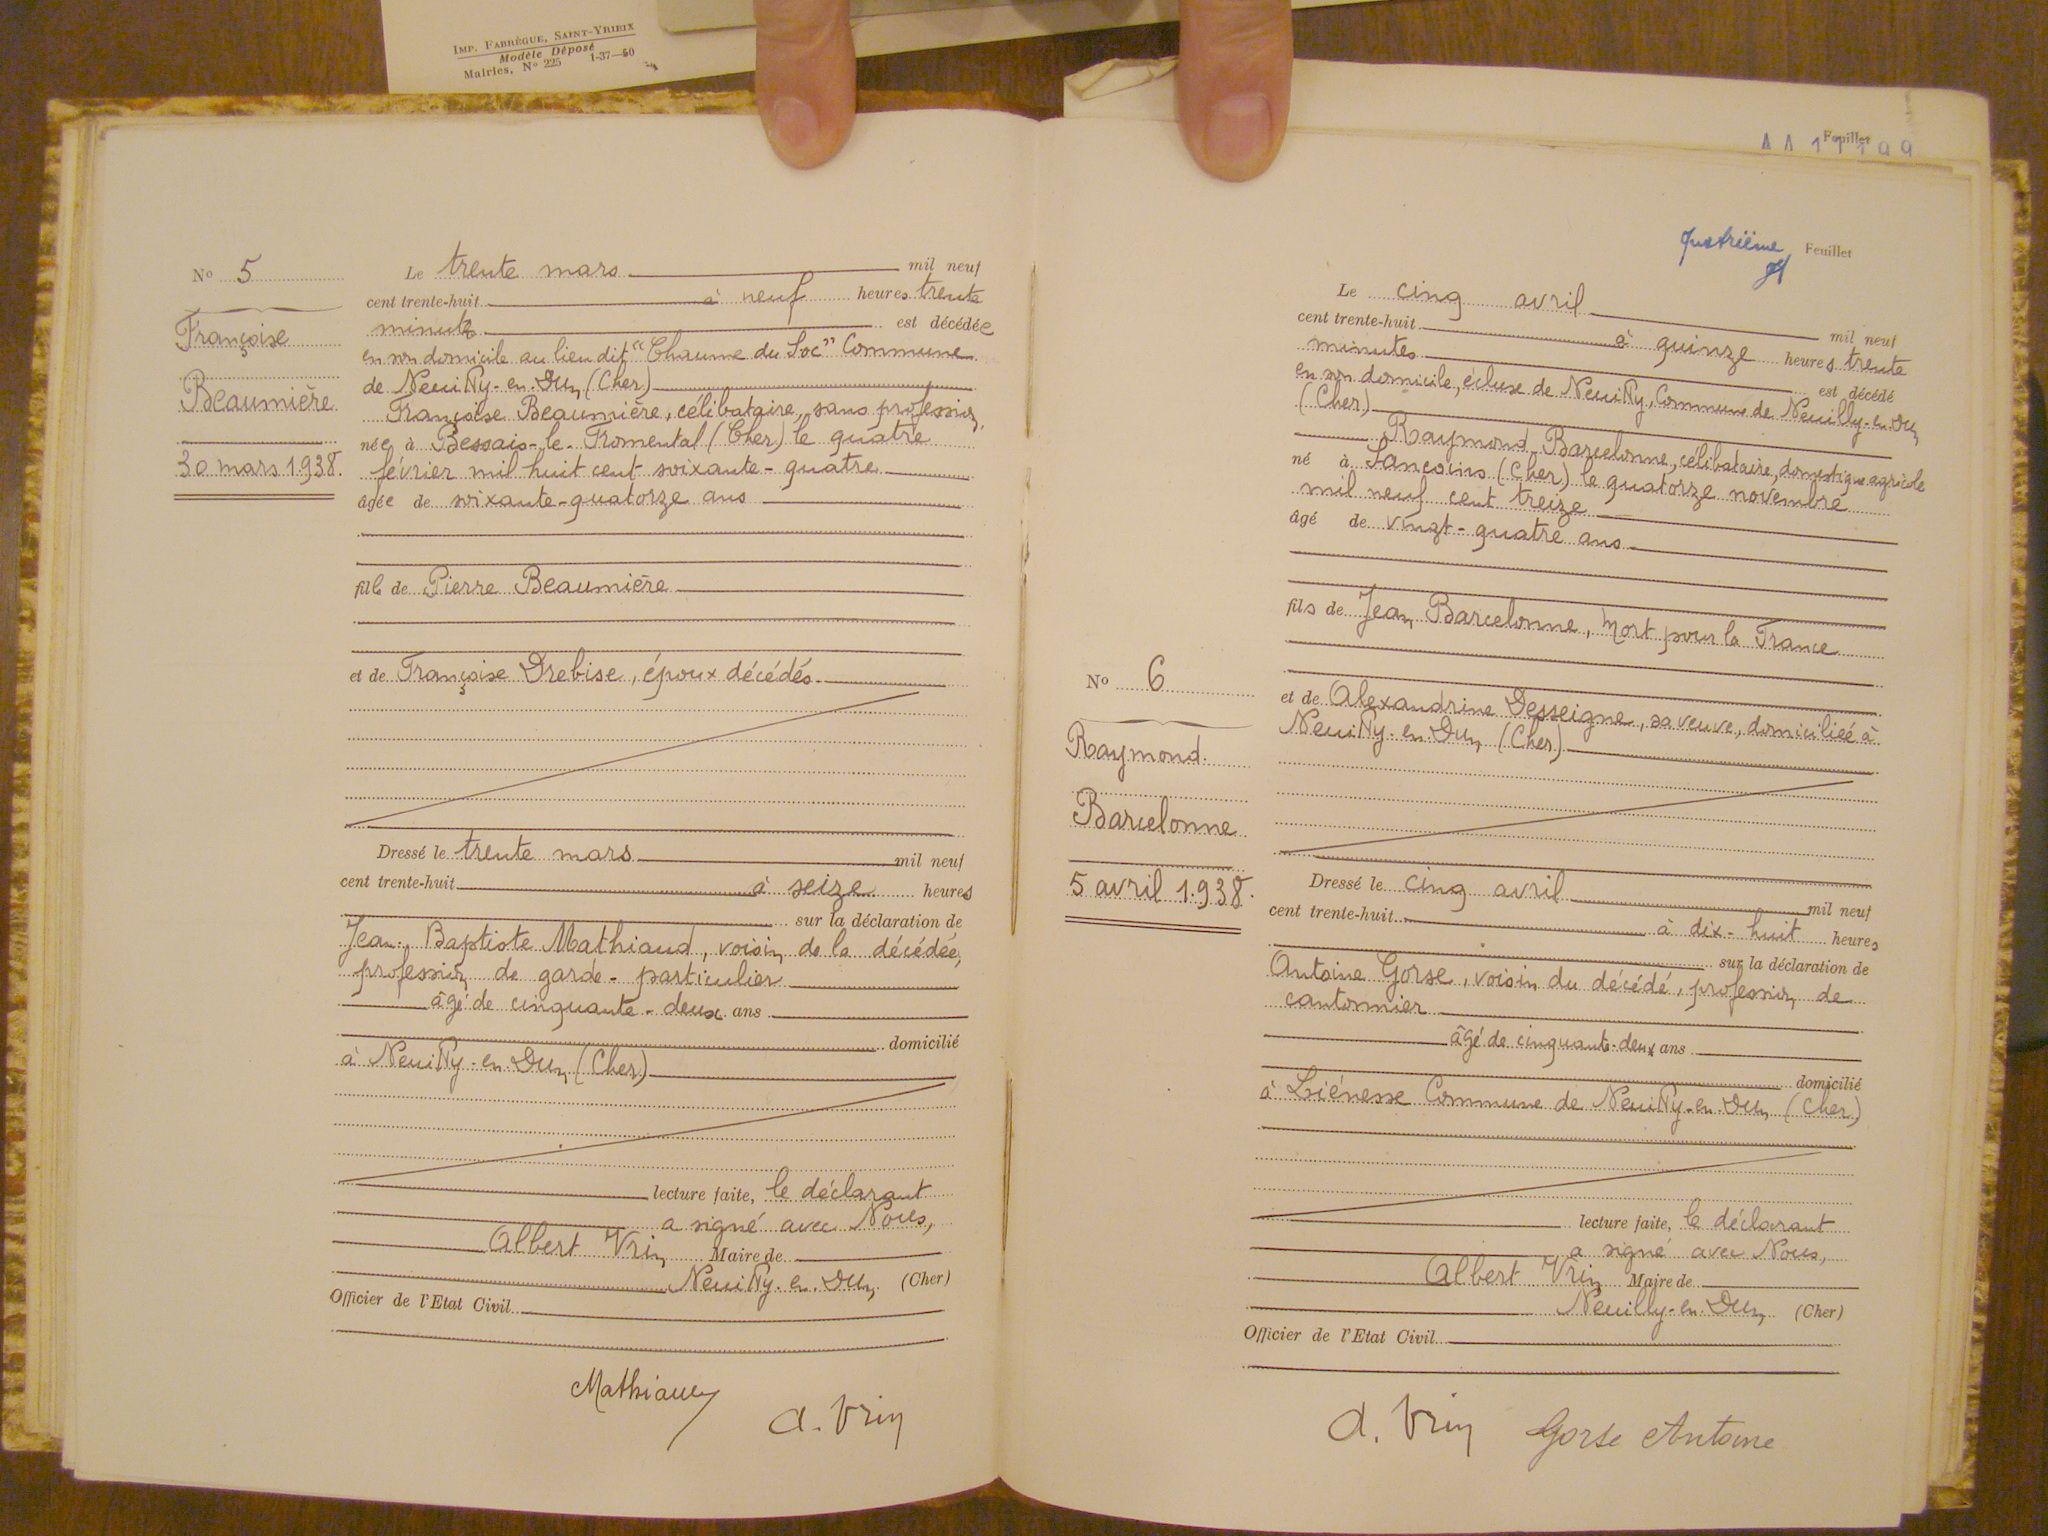 IMP. FABRÈGUE, SAINT-YRIEIX
Modèle Déposé
Mairies, No 225 1-37-50
No 5
Françoise
Beaumière
30 mars 1.938.
Le trente mars mil neuf
cent trente-huit à neuf heures trente
minutes est décédée
en son domicile au lieu dit "Chaume du Soc" Commune
de Neuilly-en-Dun (Cher)
Françoise Beaumière, célibataire, sans profession,
née à Bessais-le-Fromental (Cher) le quatre
février mil huit cent soixante-quatre
âgée de soixante-quatorze ans
fille de Pierre Beaumière
et de Françoise Drebise, époux décédés.
Dressé le trente mars mil neuf
cent trente-huit à seize heures
sur la déclaration de
Jean, Baptiste Mathiaud, voisin de la décédée,
profession de garde-particulier
âgé de cinquante-deux ans
domicilié
à Neuilly-en-Dun (Cher)
lecture faite, le déclarant
a signé avec Nous,
Albert Vrin Maire de
Neuilly-en-Dun (Cher)
Officier de l'Etat Civil
A. Vrin
Feuillet
quatrième Feuillet
No 6
Raymond
Barcelonne
5 avril 1.938.
Le cinq avril mil neuf
cent trente-huit à quinze heures trente
minutes est décédé
en son domicile, écluse de Neuilly, Commune de Neuilly-en-Dun
(Cher)
Raymond Barcelonne, célibataire, domestique agricole
né à Sancoins (Cher) le quatorze novembre
mil neuf cent treize
âgé de vingt-quatre ans
fils de Jean Barcelonne, Mort pour la France
et de Alexandrine Desseigne, sa veuve, domiciliée à
Neuilly-en-Dun (Cher)
Dressé le cinq avril mil neuf
cent trente-huit à dix-huit heures
sur la déclaration de
Antoine Gorse, voisin du décédé, profession de
cantonnier
âgé de cinquante-deux ans
domicilié
à Liénesse Commune de Neuilly-en-Dun (Cher)
lecture faite, le déclarant
a signé avec Nous,
Albert Vrin Maire de
Neuilly-en-Dun (Cher)
Officier de l'Etat Civil
A. Vrin Gorse Antoine